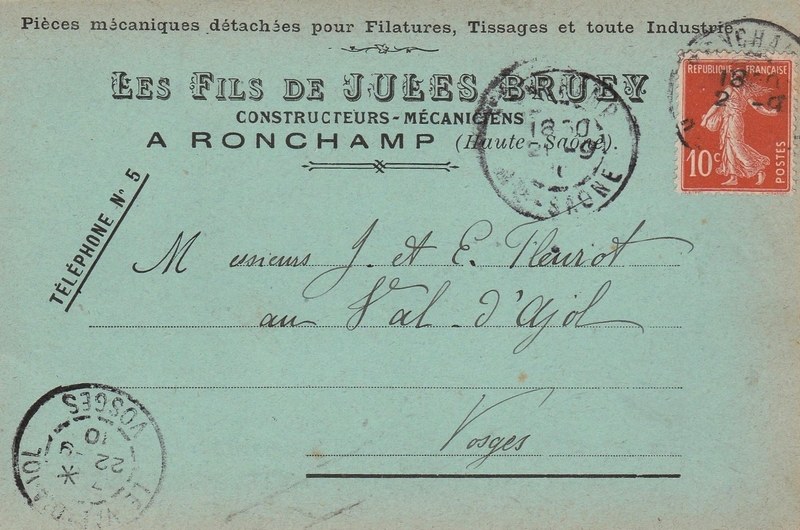 Pièces mécaniques détachées pour Filatures, Tissages et toute Industrie.
LES FILS DE JULES BRUEY
CONSTRUCTEURS-MÉCANICIENS
A RONCHAMP (Haute-Saône).
TÉLÉPHONE N° 5
REPUBLIQUE FRANÇAISE
10c
POSTES
RONCHAMP
18
2
18 30
SAONE
Messieurs J. et E. Fleurot
au Val-d'Ajol
Vosges
VOSGES
10
22